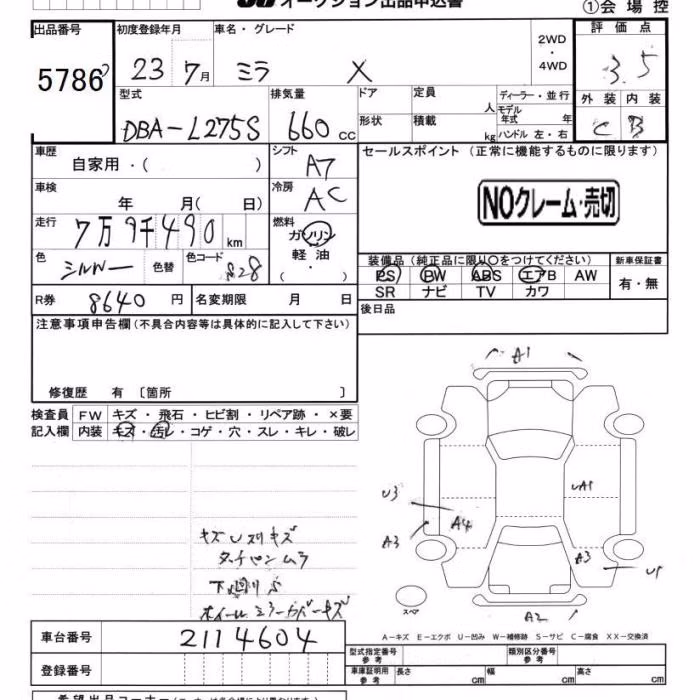 オークション出品申込書
①会場控
出品番号 初度登録年月 車名・グレード 2WD・4WD 評価点
5786 23年7月 ミラ X 3.5
型式 排気量 ドア 定員 人 ディーラー・並行 外装 内装
DBA-L275S 660cc 形状 積載 kg モデル年式 年 ハンドル 左・右 C B
車歴 自家用・( ) シフト A7 セールスポイント (正常に機能するものに限ります)
車検 年 月( 日) 冷房 AC NOクレーム・売切
走行 7万9千490km 燃料 ガソリン・軽油・( )
色 シルバー 色替 色コード S28 装備品 (純正品に限り○をつけてください) 新車保証書
PS PW ABS エアB AW 有・無
SR ナビ TV カワ
R券 8640円 名変期限 月 日 後日品
注意事項申告欄(不具合内容等は具体的に記入して下さい)
修復歴 有 〔箇所 〕
検査員記入欄 FW キズ・飛石・ヒビ割・リペア跡・×要
内装 キズ・汚レ・コゲ・穴・スレ・キレ・破レ
A1
U3 UA1
A4
A3 A3 U1
キズUスリキズ
タッチペンムラ
下廻りS
ホイールミラーカバーキズ
スペア A2
車台番号 2114604 A-キズ E-エクボ U-凹み W-補修跡 S-サビ C-腐食 XX-交換済
登録番号 型式指定番号 参考 類別区分番号 参考
車庫証明用 参考 長さ cm 幅 cm 高さ cm
希望出品コーナー